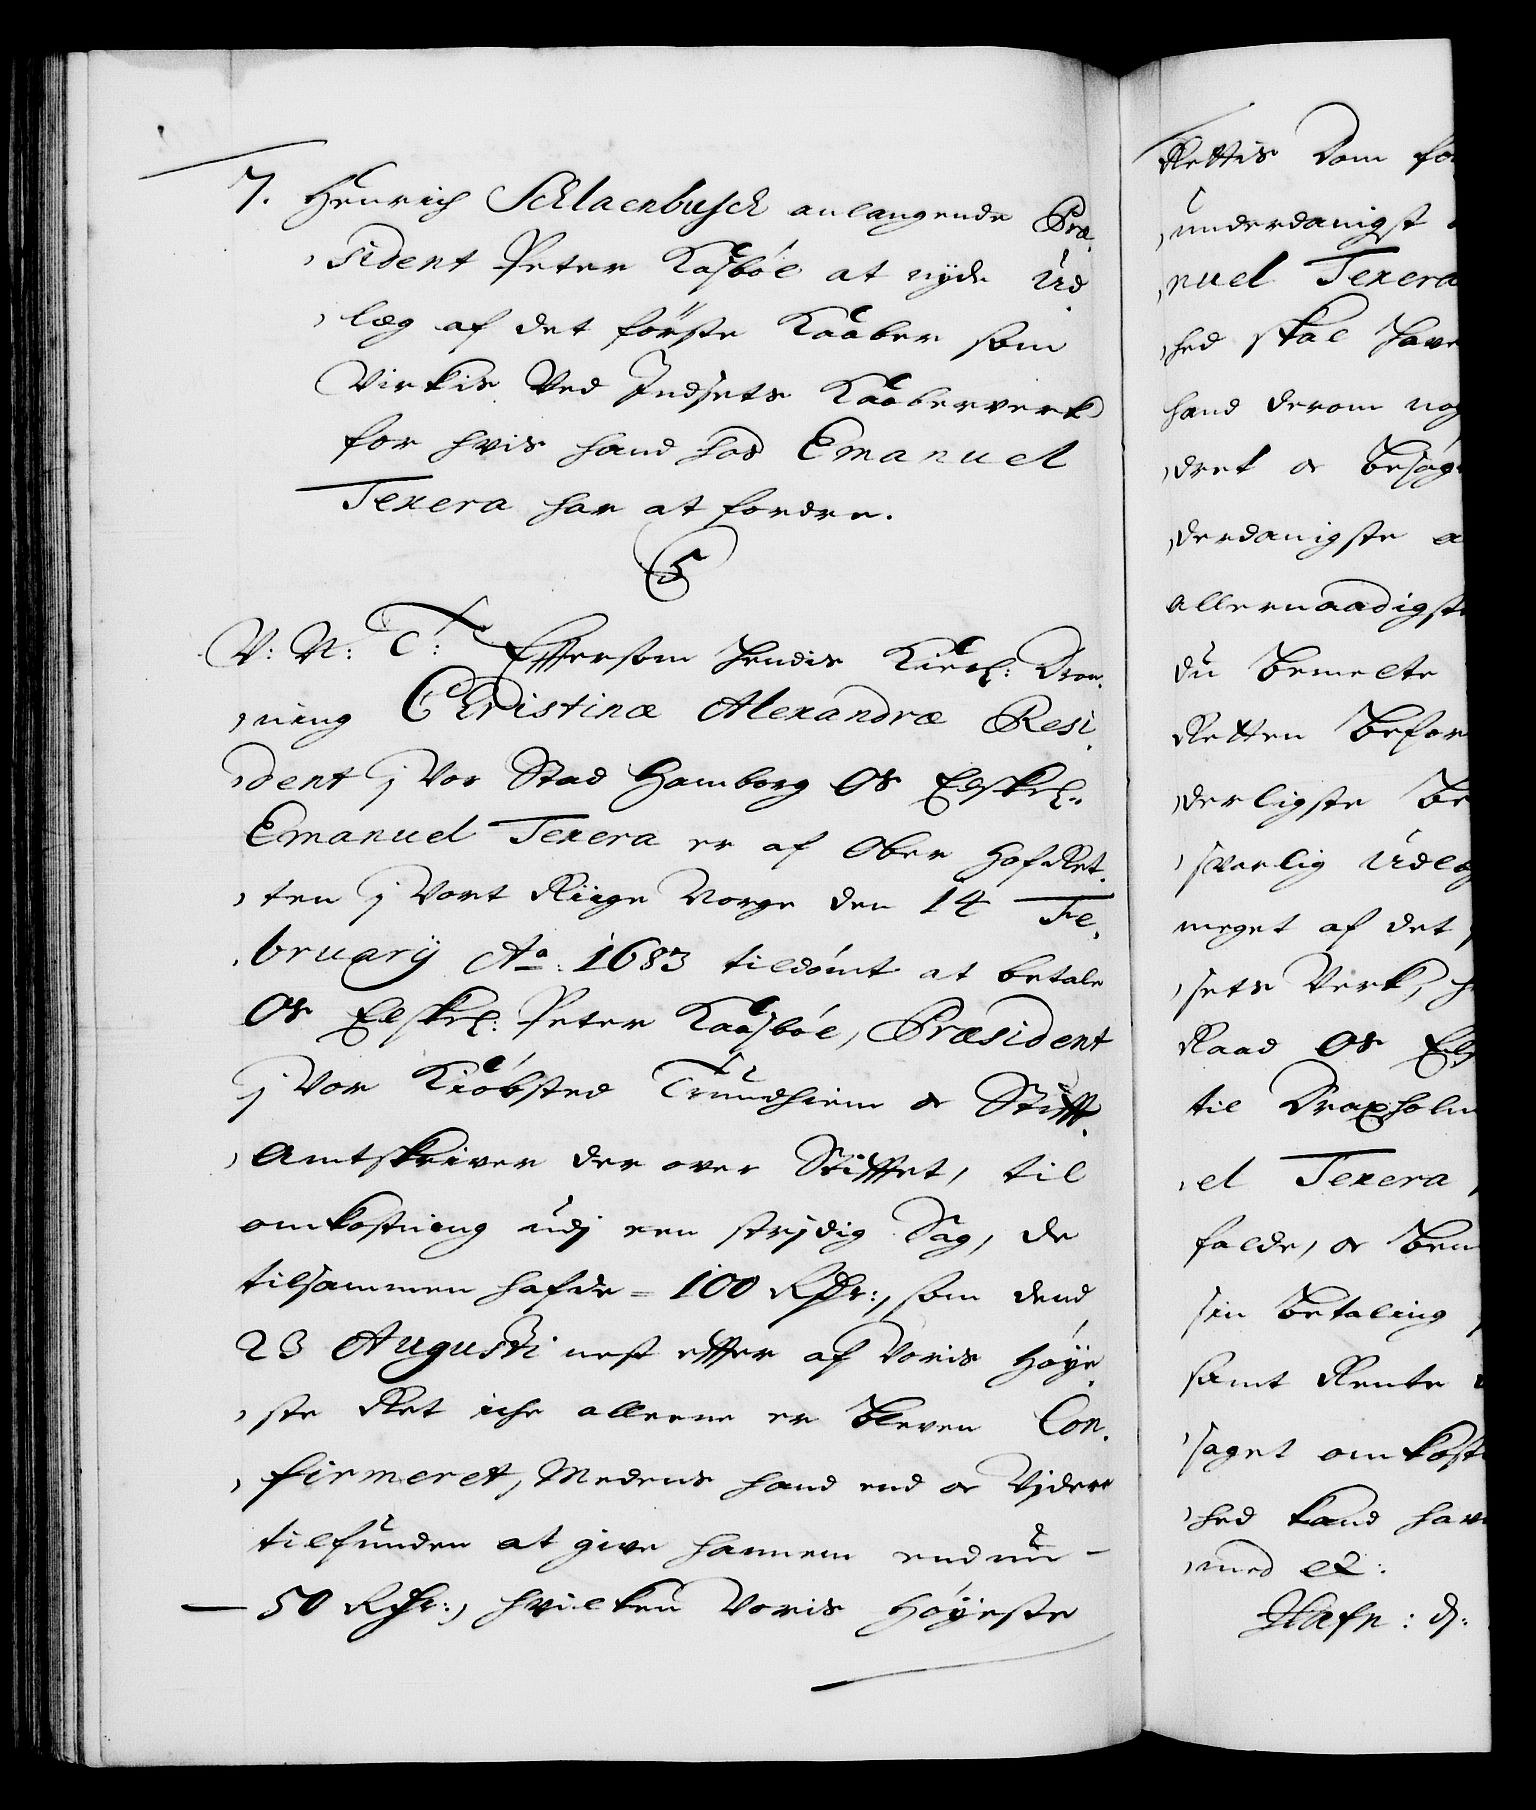 7. Henrich Schlaenbusch anlangende Præ
sident Peter Kaasbøl at nyde Ud
læg af det første Kaaber som
Virkis Ved Indsets Kaaberverk
for hvis hand hos Emanuel
Texera har at fordre.
C5
V: N: C: Effersom Hendis Kierl: Dron
ning Christinæ Alexandræ Resi
dent j Vor Stad Hamborg Os Elskel:
Emanuel Texera er af Ober Hof Ret
ten j Vort Riige Norge den 14 Fe
bruarij Ao: 1683 tildømt at betale
Os Elskel: Peter Kaasbøl, Præsident
j Vor Kiøbsted Trundhiem oc Stifft
Amtskriver der over Stifftet, til
omkostning udj een strjdig Sag, de
tilsammen hafde = 100 Rdr:, som dend
23 Augusti nest effter af Voris Høye
ste Ret iche alleene er bleven Con
firmeret, Medens hand end oc Vjdere
tilfunden at give hannem endnu
50 Rdr:, hvilken Voris Høyeste
Rettis Dom
underdanigst
nuel Texera
hed skal have
hand derom
dret oc besøgt
derdanigste
allernaadigst
du bemelte
Retten
derligste
sverlig Udlæg
meget af det
sets Verk,
Raad Os
til Draxholm
el Texera
falde, oc
sin betaling
samt Rente
saget omkost
hed kand have
med etc:
Hafn: d: